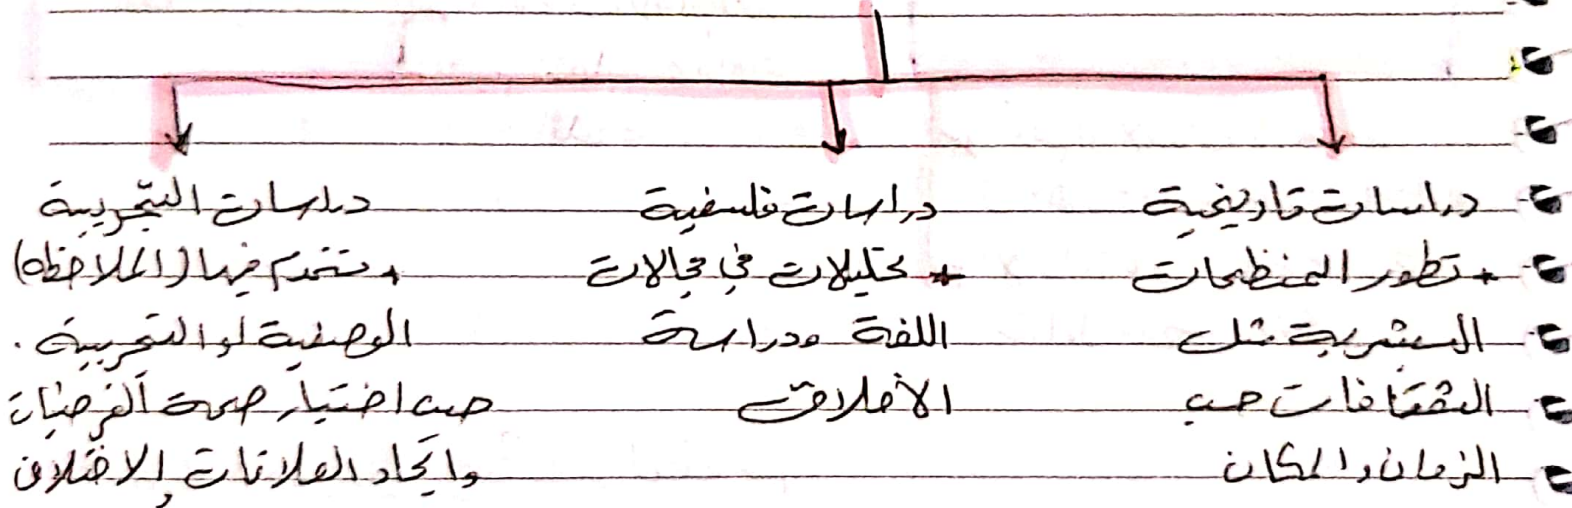 دراسات تاريخية
* تطور المنظمات
البشرية مثل
الثقافات حسب
الزمان والمكان
دراسات فلسفية
* تحليلات في مجالات
اللغة ودراسة
الأخلاق
دراسات التجريبية
* تستخدم فيها (الملاحظه)
الوصفية أو التجريبية .
حسب اختبار صحة الفرضيات
وايجاد العلاقات والاختلاف